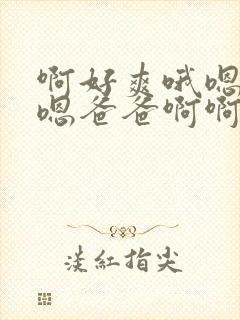 啊好爽哦嗯
嗯爸爸啊啊
淡紅指尖